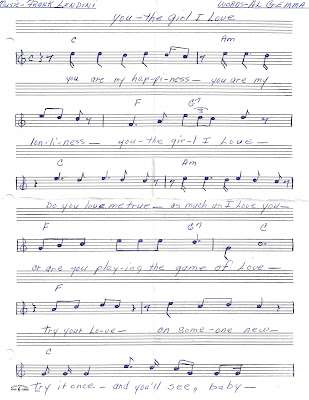 Music-FRANK LANDINI WORDS-AL GEMMA
you-the girl I Love
C Am
you are my hap-pi-ness- you are my
F G7
lon-li-ness- you-the girl I Love-
C Am
Do you love me true- as much as I love you-
F G7 C
or are you play-ing the game of Love-
F
Try your Lo-ve- on some-one new-
C
Try it once- and you'll see, baby-